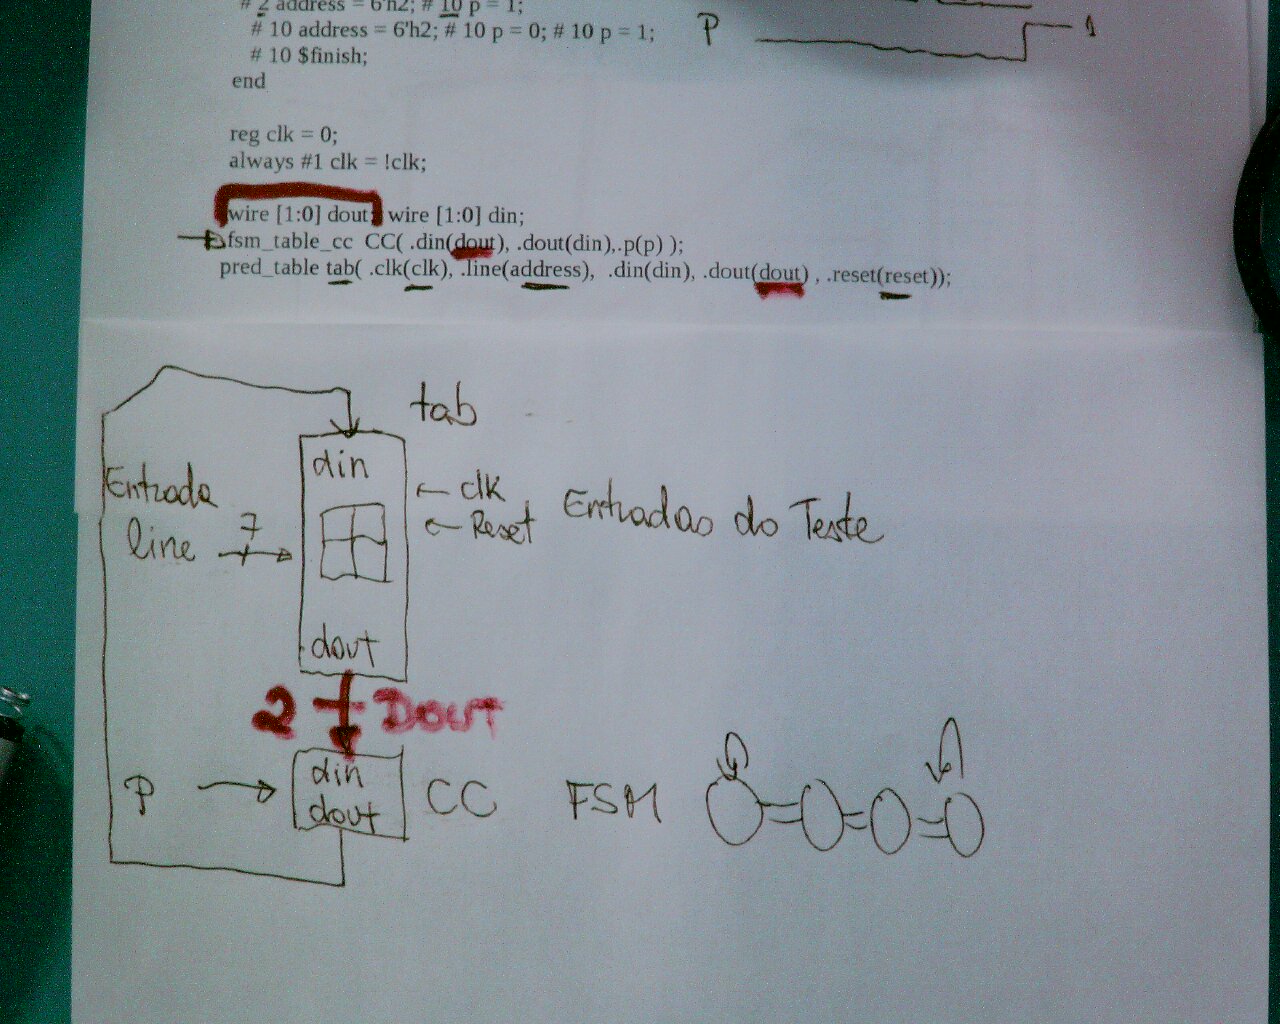 # 2 address = 6'h2; # 10 p = 1;
# 10 address = 6'h2; # 10 p = 0; # 10 p = 1;
# 10 $finish;
end
P
1
reg clk = 0;
always #1 clk = !clk;
wire [1:0] dout; wire [1:0] din;
fsm_table_cc CC( .din(dout), .dout(din),.p(p) );
pred_table tab( .clk(clk), .line(address), .din(din), .dout(dout) , .reset(reset));
tab
din
Entrada
line
7
clk
Reset
Entradas do Teste
dout
2 Dout
P
din
dout
CC
FSM